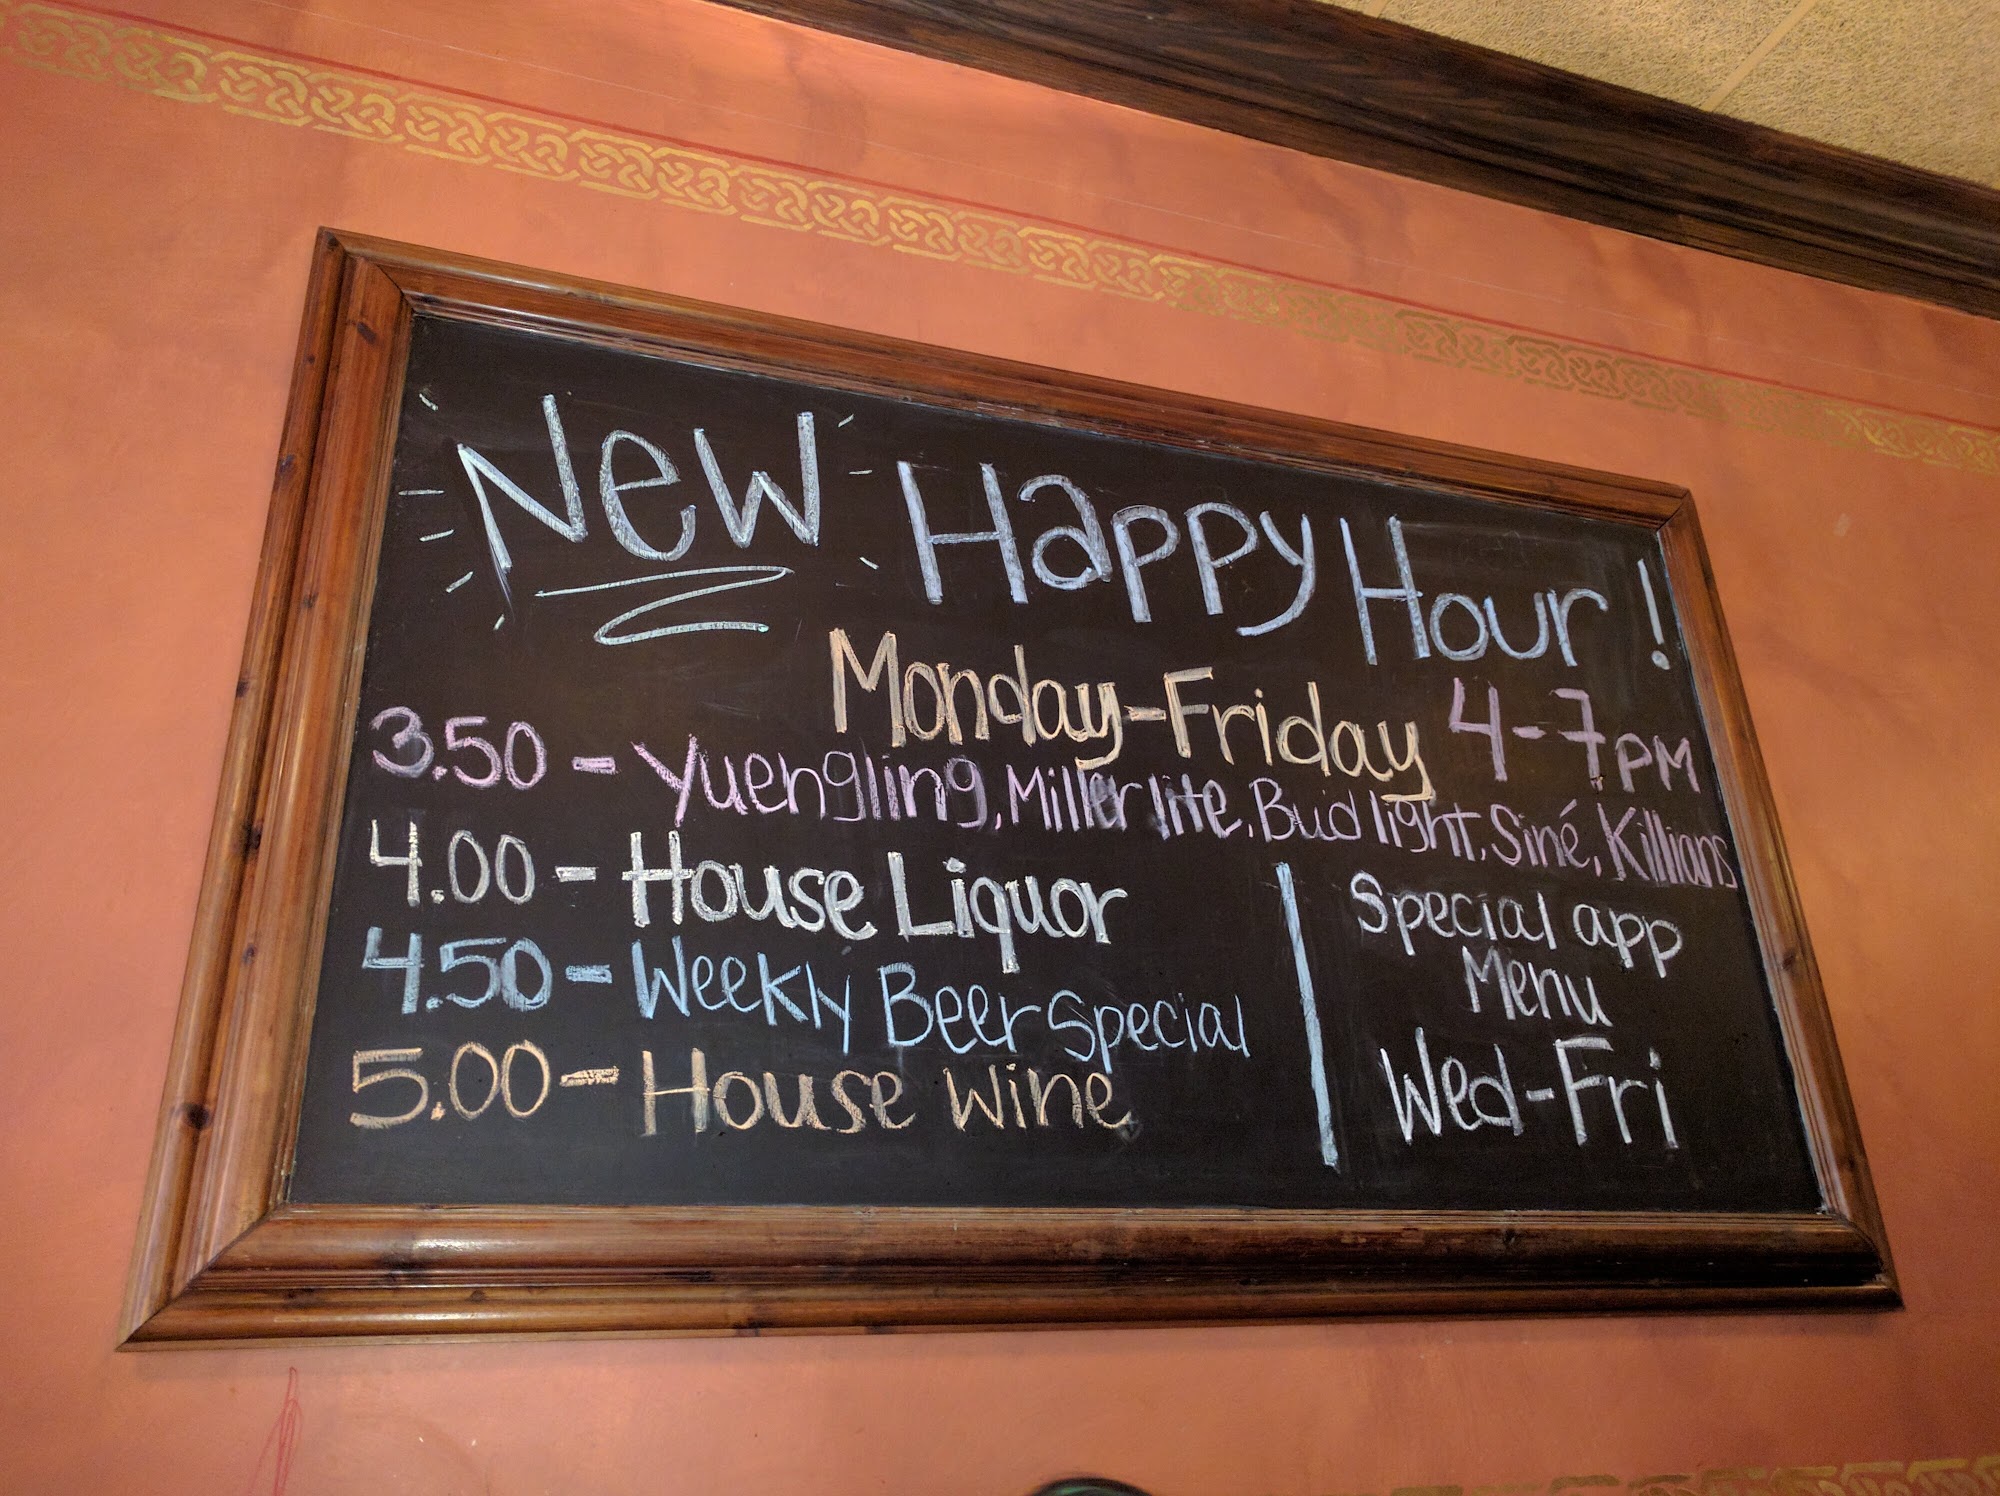 New Happy Hour!
Monday-Friday 4-7PM
3.50 - Yuengling, Miller lite, Bud light, Siné, Killians
4.00 - House Liquor
4.50 - Weekly Beer Special
5.00 - House Wine
Special app
Menu
Wed-Fri